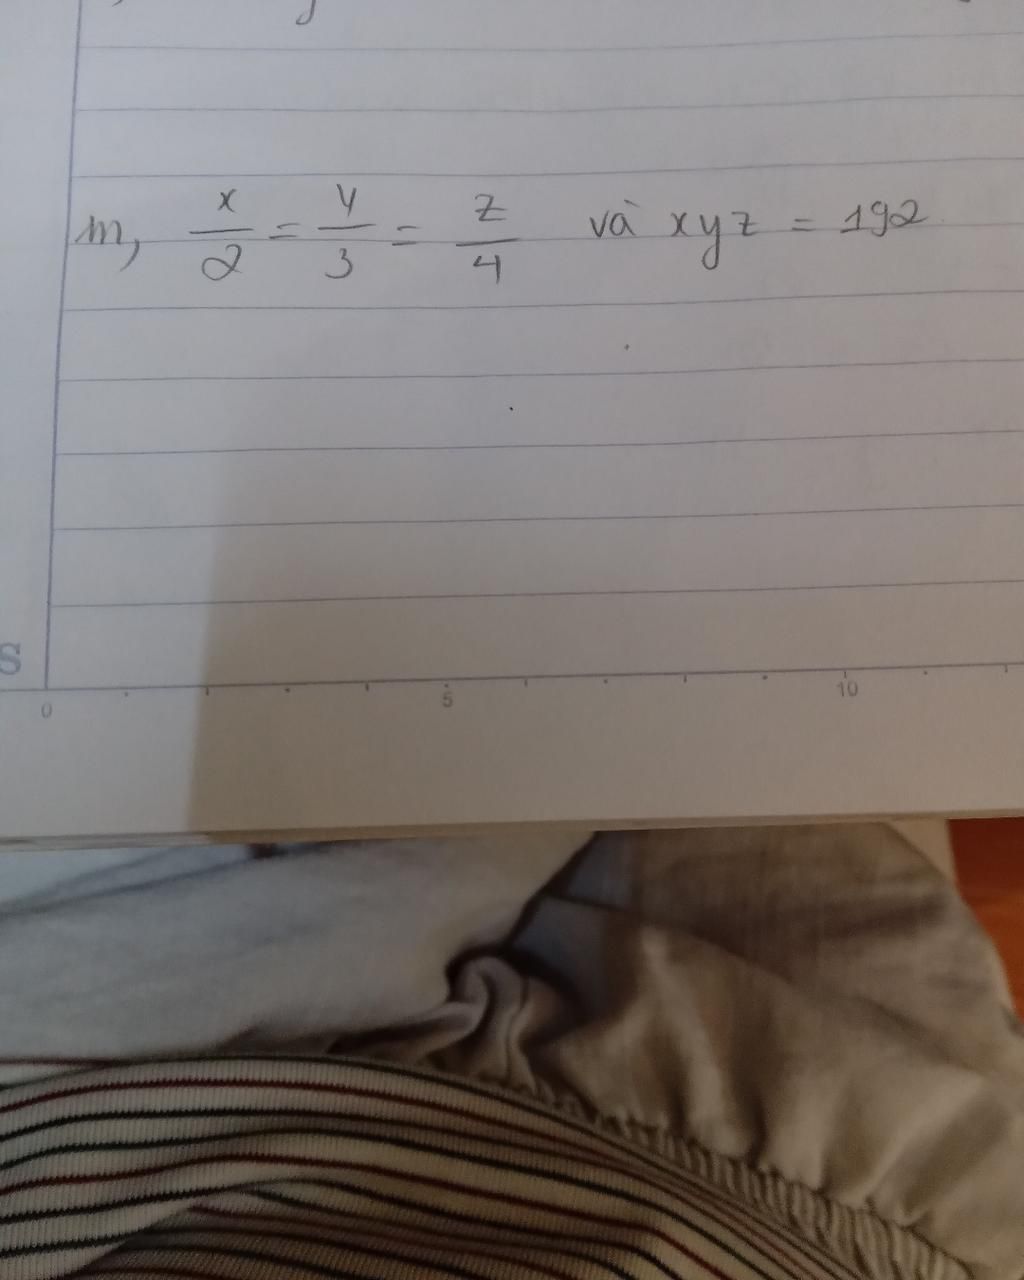 m, x/2 = y/3 = z/4 và xyz = 192
S
0 5 10